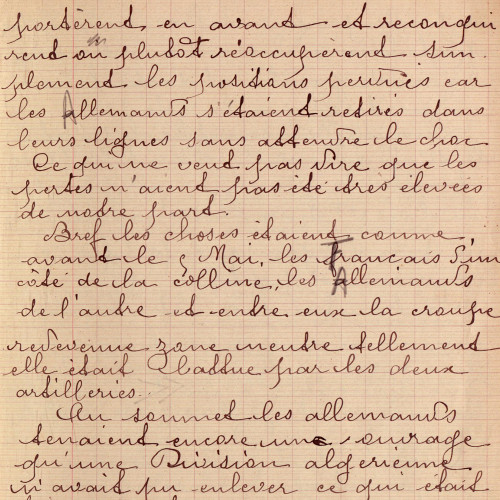 portèrent en avant et reconqui
rent ou plutôt réoccupèrent sim
plement les positions perdues car
les Allemands s'étaient retirés dans
leurs lignes sans attendre le choc
Ce qui ne veut pas dire que les
pertes n'aient pas été très élevées
de notre part.
Bref les choses étaient comme
avant le 5 Mai, les Français d'un
côté de la colline, les Allemands
de l'autre et entre eux la croupe
redevenue zone neutre tellement
elle était battue par les deux
artilleries.
Au sommet les allemands
tenaient encore un ouvrage
qu'une Division algérienne
n'avait pu enlever ce qui était